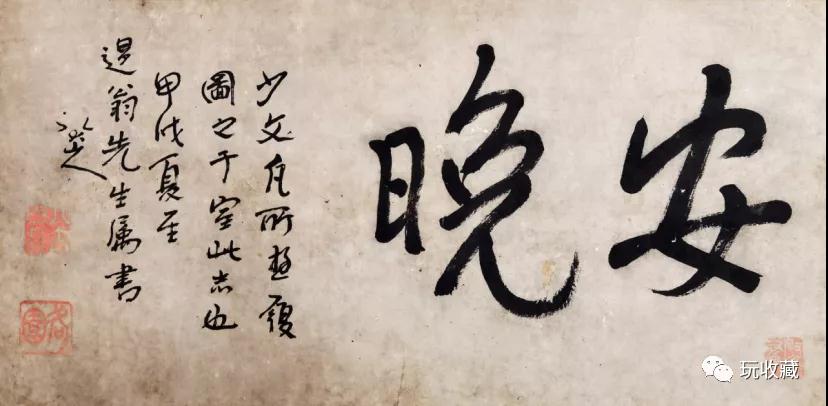 安晚
少文凡所遊履
圖之于室此志也
甲戌夏至
退翁先生屬書
八大山人
玩收藏